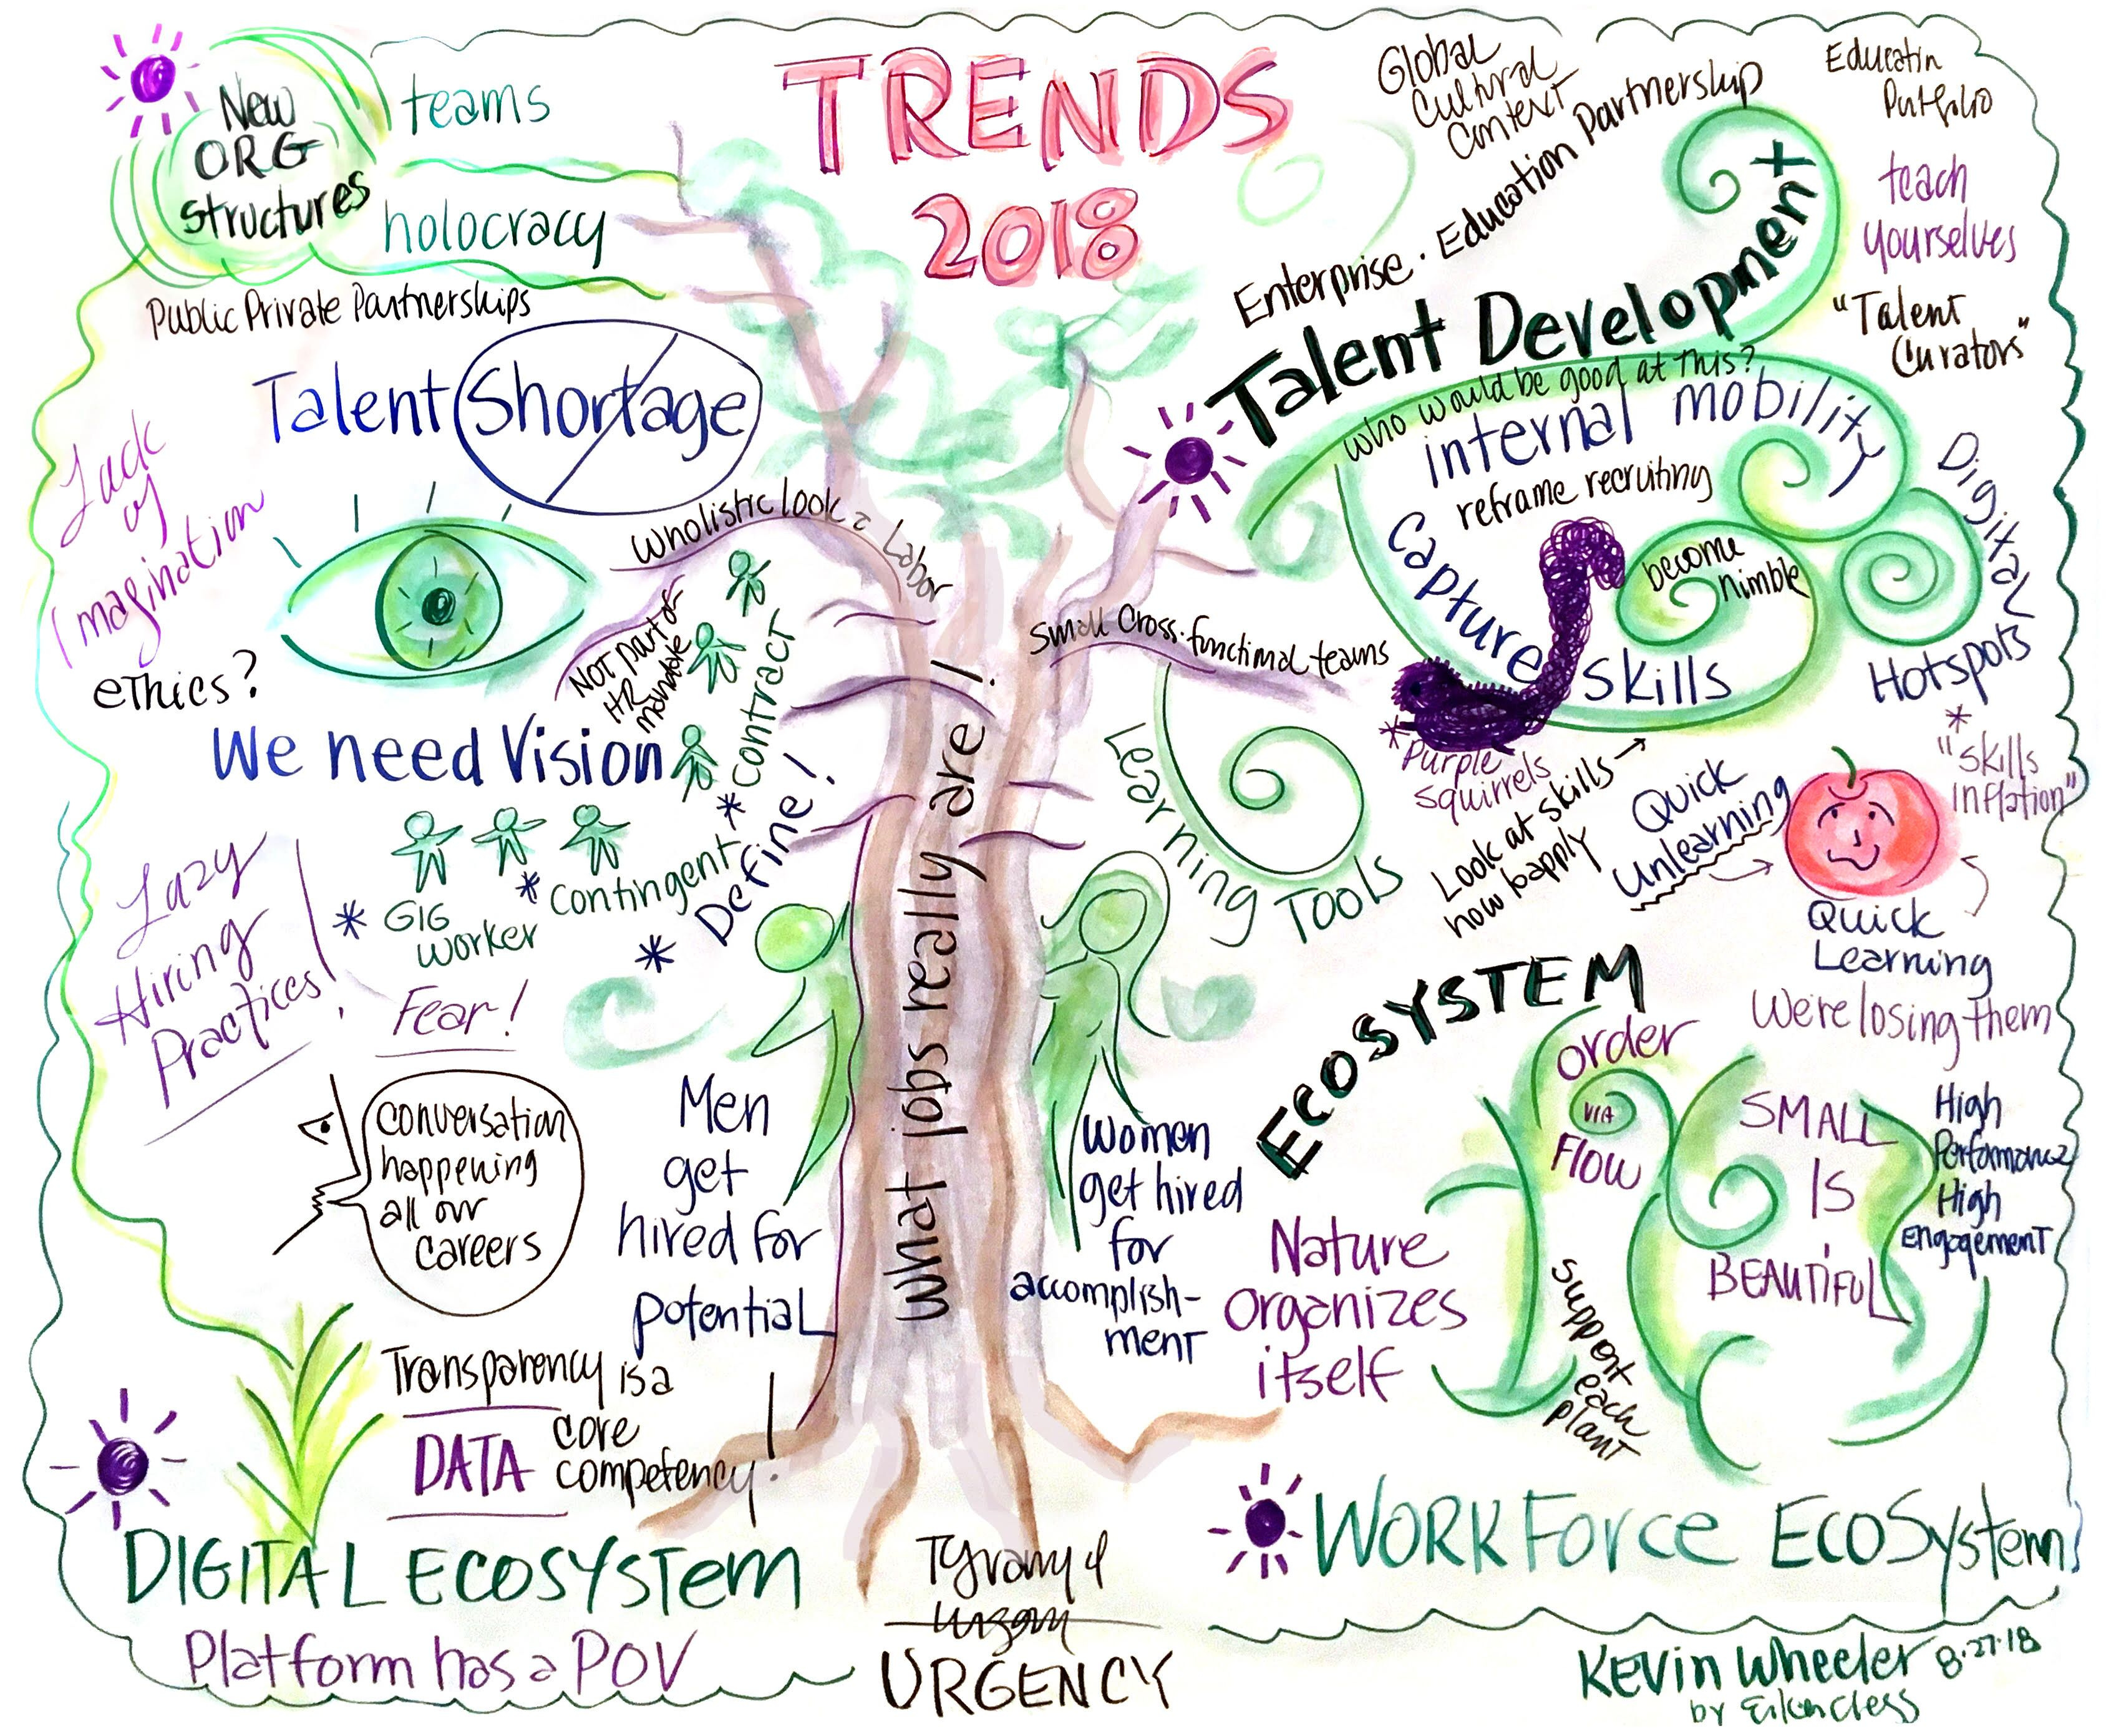 TRENDS
2018
New
ORG
Structures
teams
holocracy
Public Private Partnerships
Talent Shortage
Lack
of
Imagination
ethics?
We need Vision
Wholistic look @ Labor
NOT part of
HR
mandate
* Contract
* Contingent
* GIG
Worker
* Define!
Lazy
Hiring
Practices!
Fear!
Conversation
happening
all our
careers
Men
get
hired for
potential
Women
get hired
for
accomplish-
ment
What jobs really are!
Transparency is a
DATA core
competency!
DIGITAL ECOSYSTEM
Platform has a POV
Tyranny of
URGENCY
Global
Cultural
Context
Enterprise. Education Partnership
Educatin
Portfolio
teach
yourselves
"Talent
Curators"
Talent Development
Who would be good at this?
internal mobility
reframe recruiting
become
nimble
Capture Skills
Digital
Hotspots
Small cross-functional teams
* Purple
squirrels
Learning Tools
Look at skills →
how to apply
Quick
Unlearning
* "skills
inflation"
Quick
Learning
We're losing them
ECOSYSTEM
order
VIA
Flow
SMALL
IS
BEAUTIFUL
High
Performance
High
Engagement
Nature
organizes
itself
support
each
plant
WORKForce EcoSystem!
Kevin Wheeler 8.27.18
by